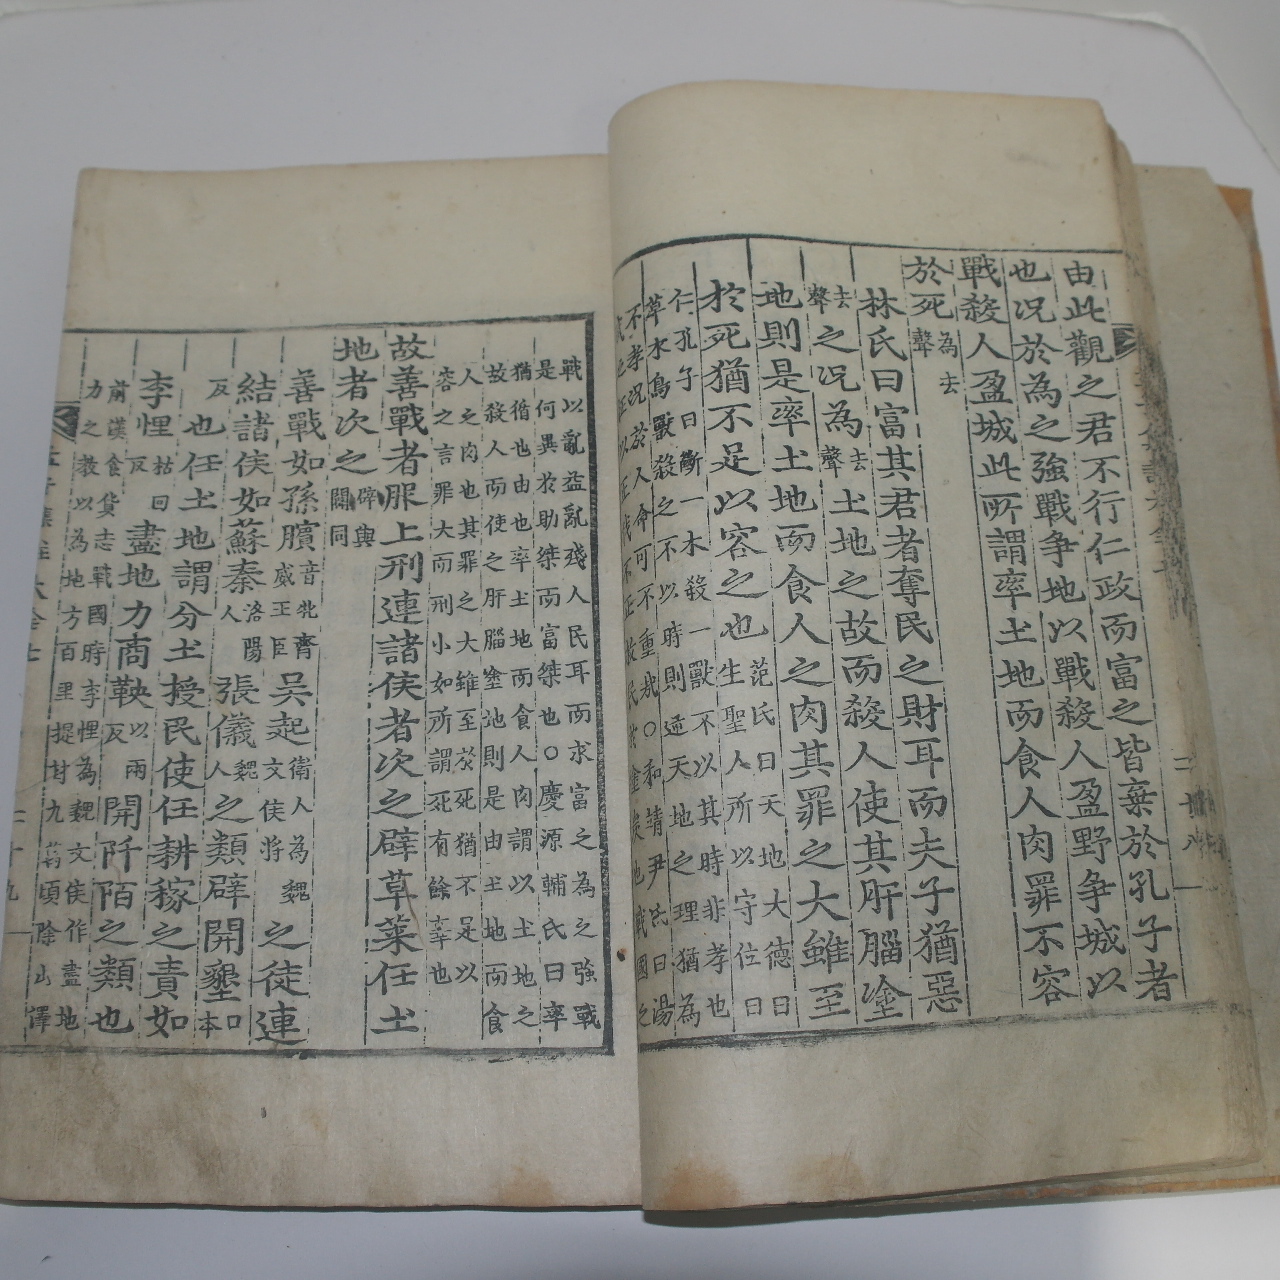 由此觀之君不行仁政而富之皆棄於孔子者
也况於為之強戰争地以戰殺人盈野争城以
戰殺人盈城此所謂率土地而食人肉罪不容
於死為去聲
林氏曰富其君者奪民之財耳而夫子猶惡
去聲之况為去聲土地之故而殺人使其肝腦塗
地則是率土地而食人之肉其罪之大雖至
於死猶不足以容之也范氏曰天地大德曰
生聖人所以守位曰
仁孔子曰斷一木殺一獸不以其時非孝也
草木鳥獸殺之不以時則逆天地之理猶為
不孝况於人命可不重哉○和靖尹氏曰湯
以正不正民塗地戰國之
二十八
戰以亂益亂殘人民耳而求富之為之強戰
是何異於助桀而富桀也○慶源輔氏曰率
猶循也由也率土地而食人肉謂以土地之
故殺人而使之肝腦塗地則是由土地而食
人之肉也其罪之大雖至於死猶不足以
容之言罪大而刑小如所謂死有餘辜也
故善戰者服上刑連諸侯者次之辟草萊任土
地者次之辟與闢同
善戰如孫臏音牝齊威王臣吳起衛人為魏文侯將之徒連
結諸侯如蘇秦洛陽人張儀魏人之類辟開墾口本
反也任土地謂分土授民使任耕稼之責如
李悝枯回反盡地力商鞅以兩反開阡陌之類也
前漢食貨志戰國時李悝為魏文侯作盡地
力之教以為地方百里提封九萬頃除山澤
孟子集註大全七
二十九